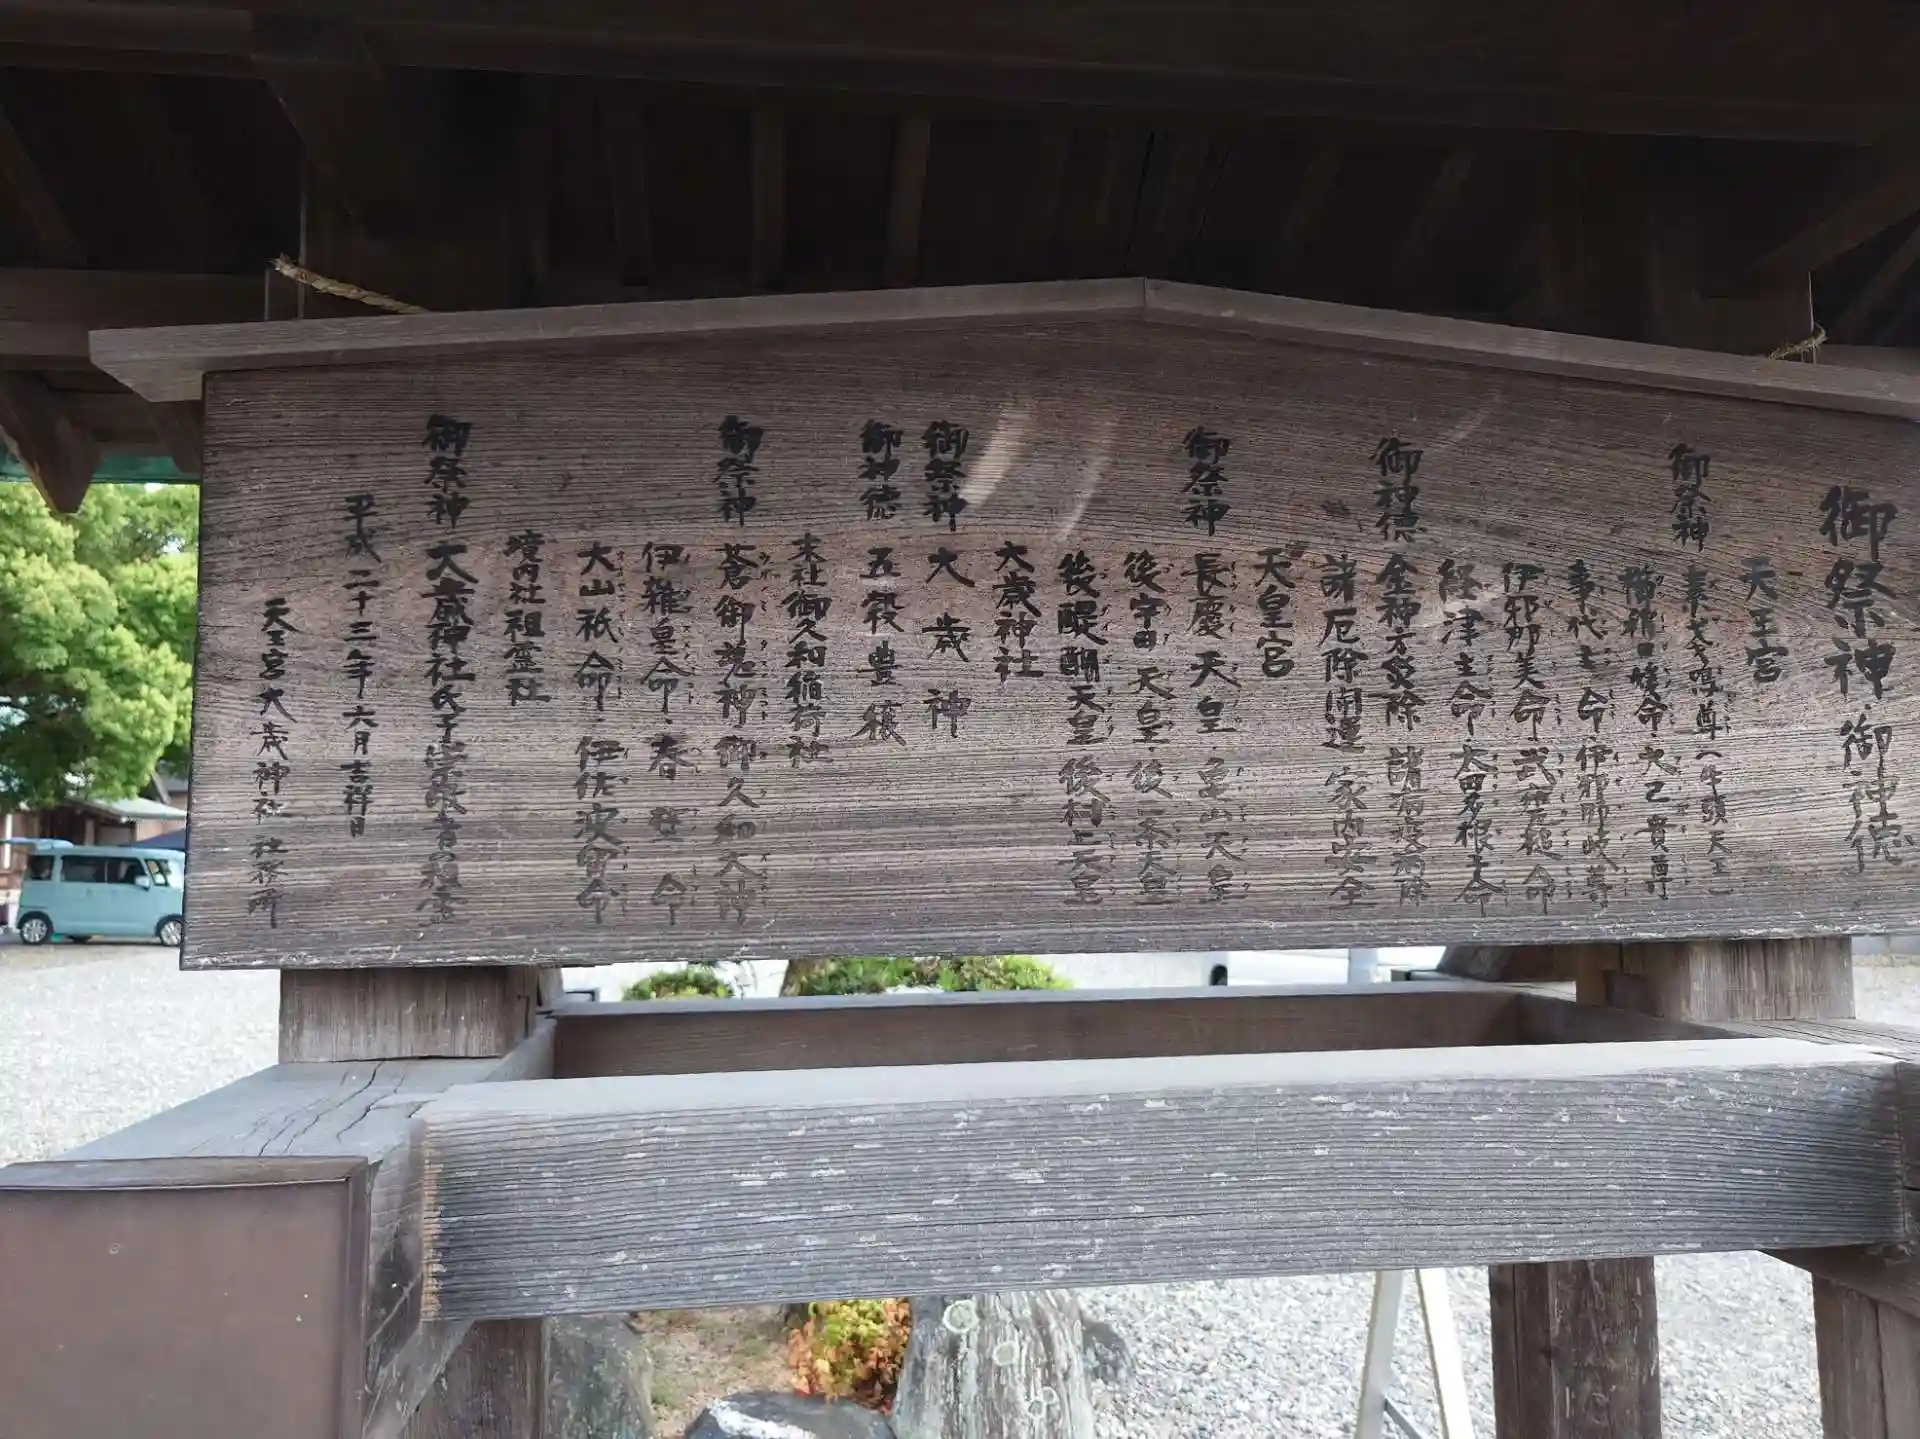 御祭神・御神徳
天王宮
御祭神 素戔鳴尊(牛頭天王)
櫛稲田媛命・大己貴尊
事代主命・伊邪那岐尊
伊邪那美命・武甕槌命
経津主命・大田多根子命
御神徳 金神方災除 諸病疫病除
諸厄除開運 家内安全
天皇宮
御祭神 長慶天皇・亀山天皇
後宇田天皇・後二条天皇
後醍醐天皇 後村上天皇
大歳神社
御祭神 大歳神
御神徳 五穀豊穣
末社御久和稲荷社
御祭神 蒼御魂神 御久和大神
伊雑皇命・春日命
大山祇命・伊佐波登命
境内社祖霊社
御祭神 大歳神社氏子崇敬者の祖霊
平成二十三年六月吉祥日
天王宮大歳神社 社務所